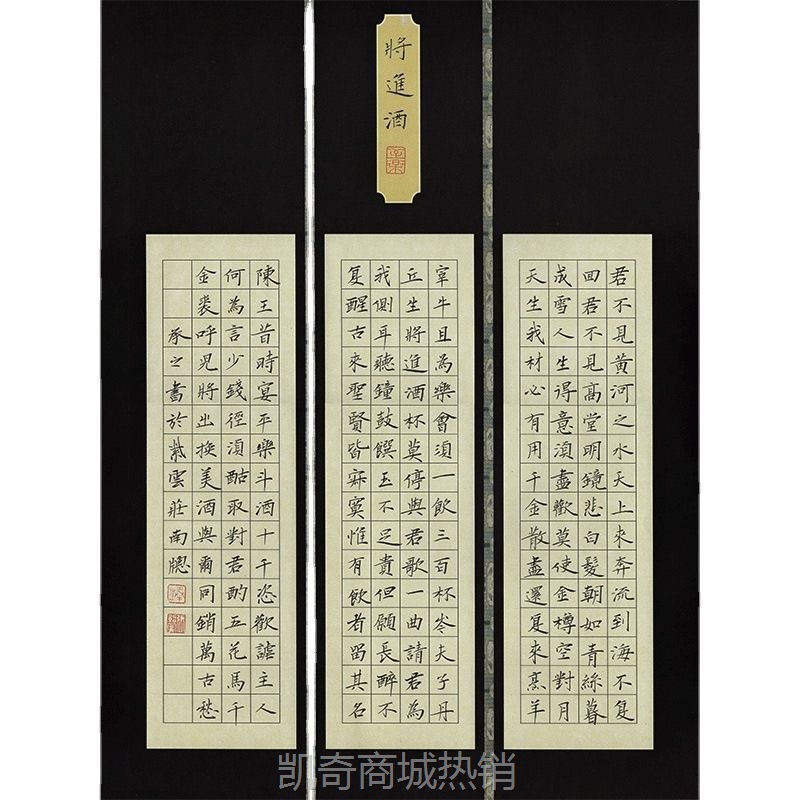 將進酒
君不見黃河之水天上來奔流到海不复
回君不見高堂明鏡悲白髮朝如青絲暮
成雪人生得意須盡歡莫使金樽空對月
天生我材必有用千金散盡還复來烹羊
宰牛且為樂會須一飲三百杯岑夫子丹
丘生將進酒杯莫停與君歌一曲請君為
我側耳聽鐘鼓饌玉不足貴但願長醉不
复醒古來聖賢皆寂寞惟有飲者留其名
陳王昔時宴平樂斗酒十千恣歡謔主人
何為言少錢徑須酤取對君酌五花馬千
金裘呼兒將出換美酒與爾同銷萬古愁
承之書於紫雲莊南牕
凯奇商城热销